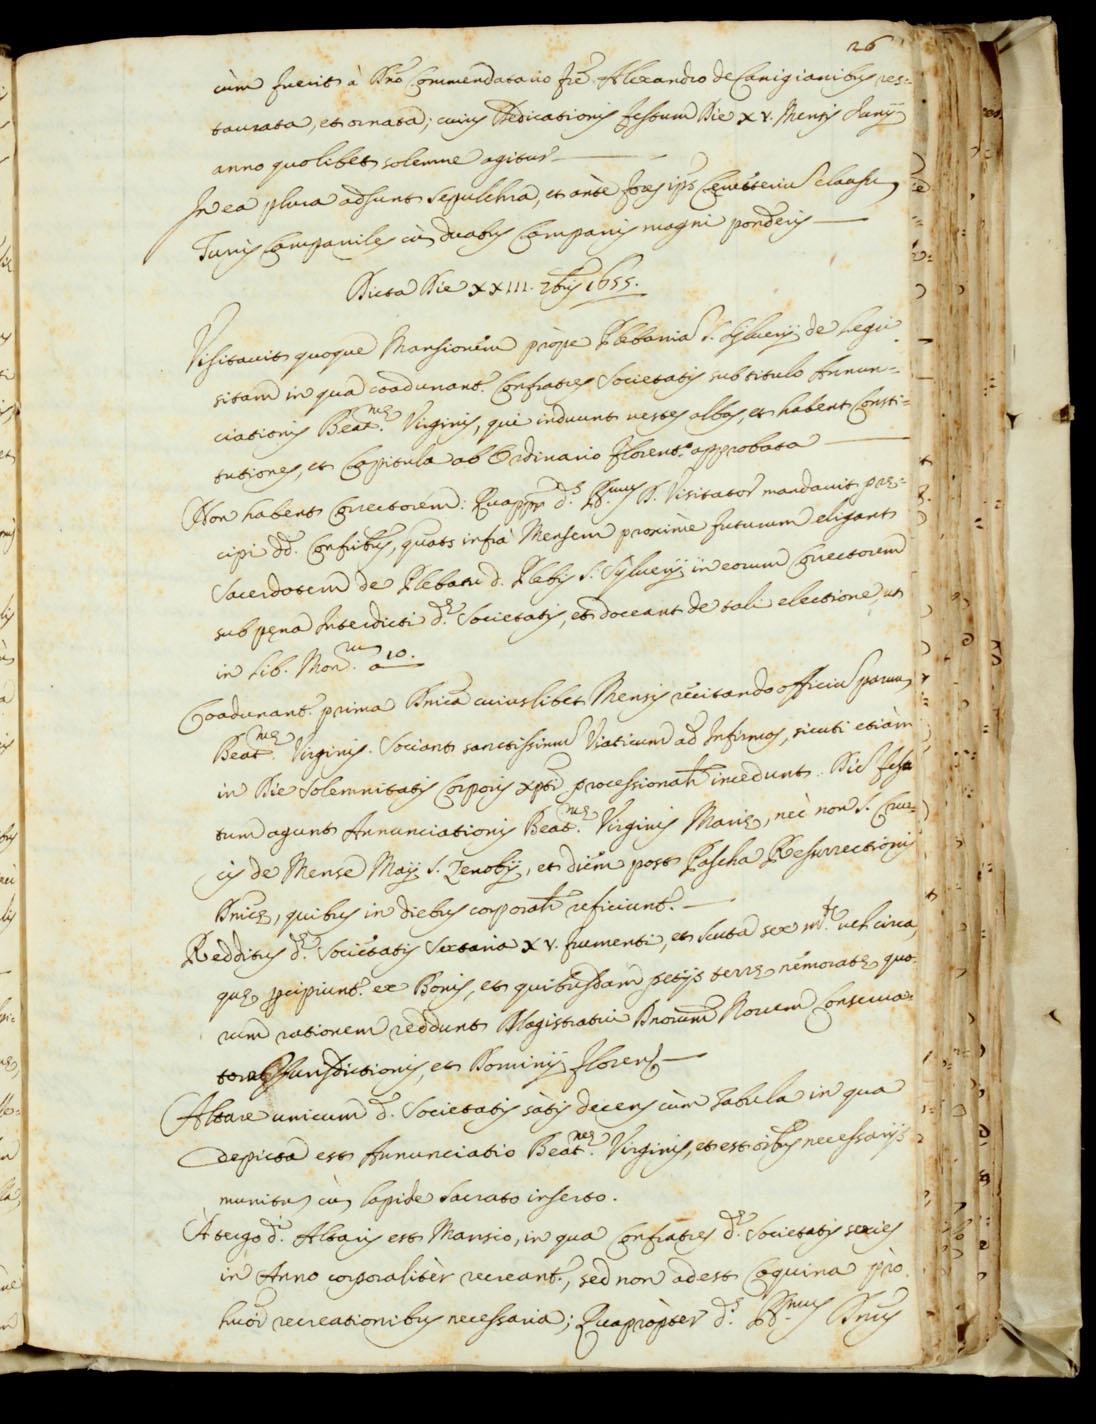 26
cùm fuerit à Dno Commendatario fre Alexandro de Canigianibus res=
taurata, et ornata; cuius Dedicationis festum Die XV. Mensis Junij
anno quolibet solemne agitur
In ea plura adsunt sepulchra, et ante fores ips Cemeteriu clausu,
Turris Campanile cù duabus Campanis magni ponderis
Dicta Die XXIII. 7bris 1655.
Visitavit quoque Mansionem pròpe Plebania S. Sylverij de
sitam in qua coadunant. Confratres Societatis sub titulo Annun=
ciationis Beat.mę Virginis, qui induunt vestes albas, et habent Consti=
tutiones, et Capitula ab Ordinario Florent.o approbata
Non habent Correctorem: Quappr d.s Illmus D. Visitator mandavit prę=
cipi dd. Confribus, quats infrà Mensem proximè futurum eligant
Sacerdotem de Plebatu d. Plebis S. Sylverij in eorum Correctorem
sub pęna Interdicti d.ę Societatis, et doceant de tali electione, ut
in Lib. Mon.rum a 10.
Coadunant. prima Dnica cuiuslibet Mensis recitando officiu parvu,
Beat.mę Virginis. Sociant sanctissimu Viaticum ad Infirmos, sicuti etiàm
in Die Solemnitatis Corporis xpti processionalr incedunt. Die festu
tum agunt Annunciationis Beat.mę Virginis Marię, nec non S. Cru=
cis de Mense Maij S. Zenobij, et diem post Pascha Resurrectionis
Dnicę, quibus in diebus corporalr reficiunt.
Redditus d.ę Societatis Sextaria XV. frumenti, et scuta sex m.tę vel circa,
quę percipiunt. ex Bonis, et quibusdam petijs terrę nemoratę quo-
rum rationem reddunt Magistratui Dnorum Novem Conserva-
torum Jurisdictionis, et Dominij Floren.
Altare unicum d.ę Societatis sàtis decens cùm Tabula in qua
depicta est Annunciatio Beat.mę Virginis, et est oibus necessarijs
munitu, cù lapide sacrato inserto.
À tergo d.i Altaris est Mansio, in qua Confratres d.ę Societatis sexies
in Anno corporalitèr recreant., sed non adest Coquina prò
huor recreationibus necessaria; Quapròpter d.s Illmus Dnus